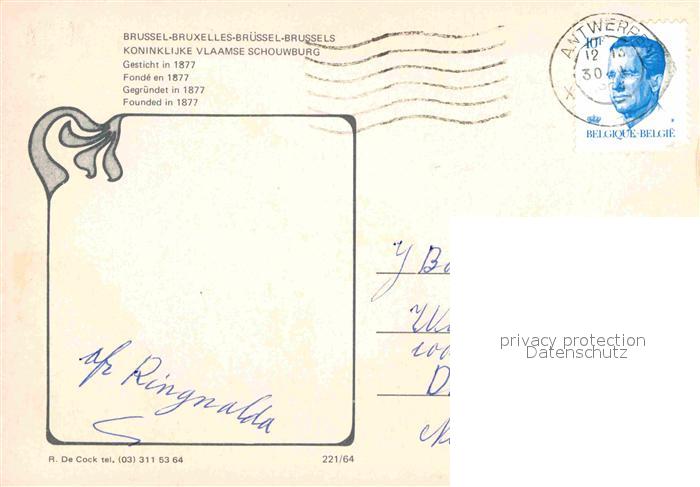 BRUSSEL-BRUXELLES-BRÜSSEL-BRUSSELS
KONINKLIJKE VLAAMSE SCHOUWBURG
Gesticht in 1877
Fondé en 1877
Gegründet in 1877
Founded in 1877
ANTWERPEN
12
30
X
10F
BELGIQUE-BELGIË
J Ba
D.
privacy protection
Datenschutz
Ringnalda
R. De Cock tel. (03) 311 53 64
221/64